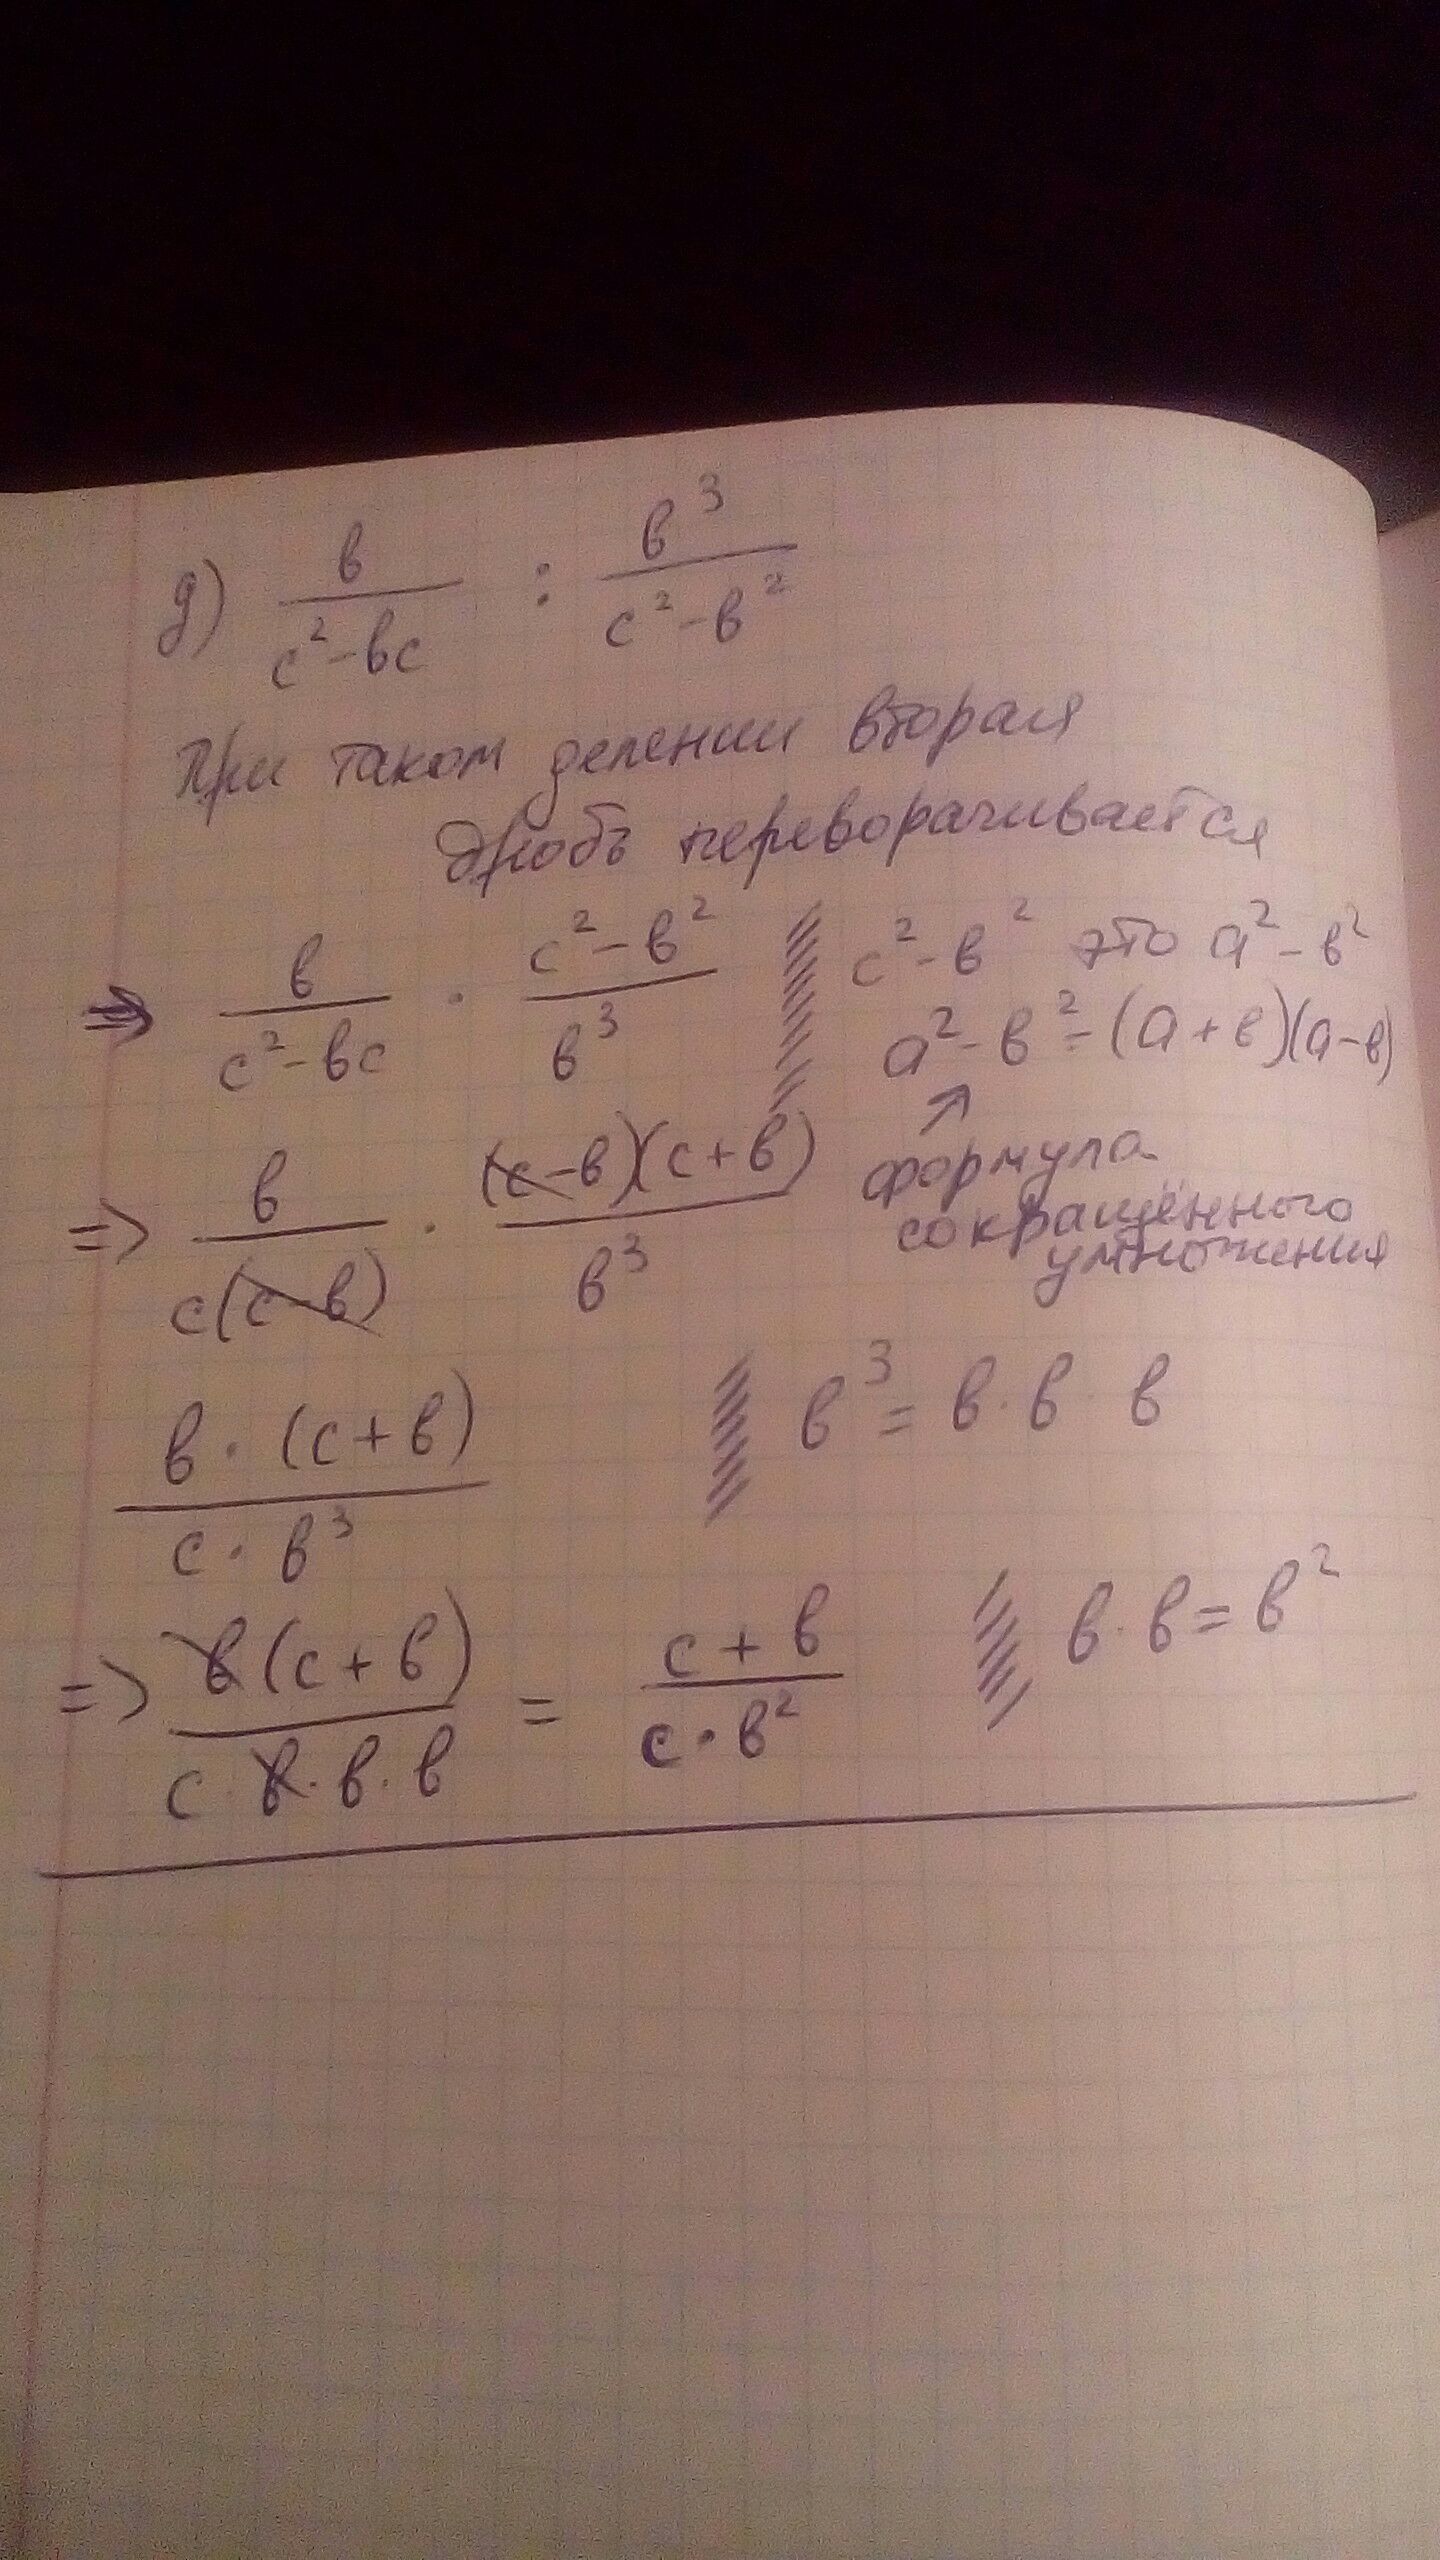 д) в/(c²-вc) : в³/(c²-в²)
При таком делении вторая
дробь переворачивается
⇒ в/(c²-вc) · (c²-в²)/в³
c²-в² это a²-в²
a²-в²=(a+в)(a-в)
↗
формула
сокращённого
умножения
=> в/(c(c-в)) · ((c-в)(c+в))/в³
(в·(c+в))/(c·в³)
в³=в·в в
=> (в(c+в))/(c·в·в·в) = (c+в)/(c·в²)
в·в=в²